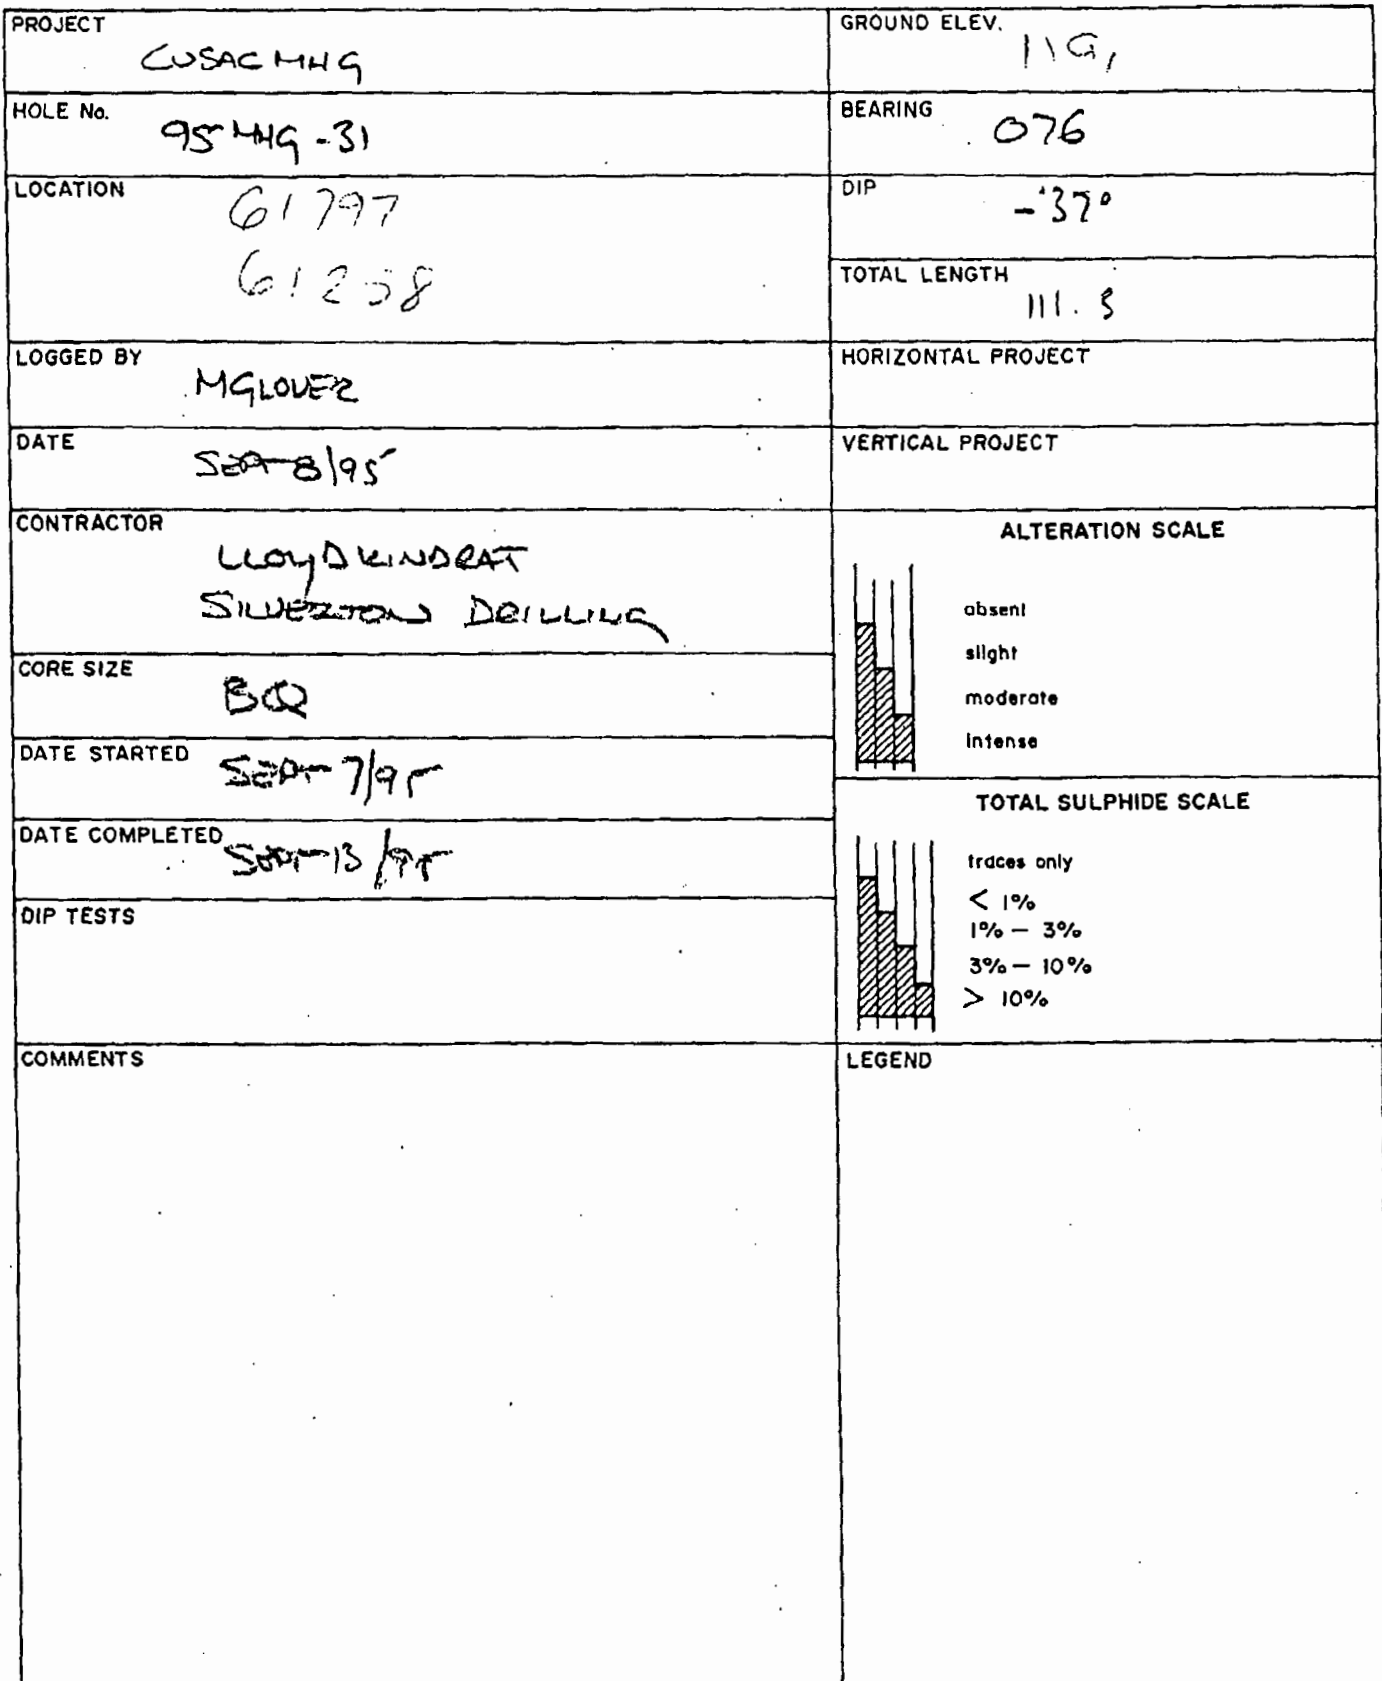 PROJECT
CUSAC MHG
HOLE No.
95 MHG -31
LOCATION
61797
LOGGED BY
MGLOVER
DATE
SEPT 8/95
CONTRACTOR
LLOYD KINDRAT
SILVERTON DRILLING
CORE SIZE
BQ
DATE STARTED
SEPT 7/95
DATE COMPLETED
SEPT 13/95
DIP TESTS
COMMENTS
GROUND ELEV.
BEARING
076
DIP
-37°
TOTAL LENGTH
HORIZONTAL PROJECT
VERTICAL PROJECT
ALTERATION SCALE
absent
slight
moderate
intense
TOTAL SULPHIDE SCALE
traces only
< 1%
1% — 3%
3% — 10%
> 10%
LEGEND